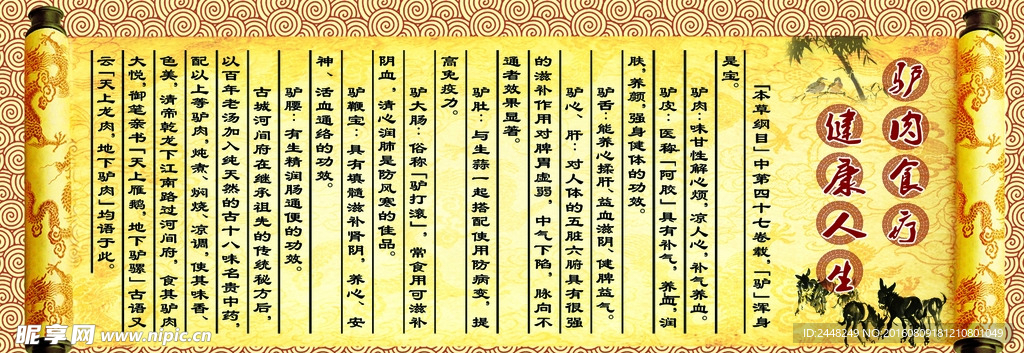 驴肉食疗
健康人生
「本草纲目」中第四十七卷载，「驴」浑身
是宝。
驴肉：味甘性解心烦，凉人心，补气养血。
驴皮：医称「阿胶」具有补气，养血，润
肤，养颜，强身健体的功效。
驴舌：能养心揉肝、益血滋阴、健脾益气。
驴心、肝：对人体的五脏六腑具有很强
的滋补作用对脾胃虚弱，中气下陷，脉向不
通者效果显著。
驴肚：与生蒜一起搭配使用防病变，提
高免疫力。
驴大肠：俗称「驴打滚」，常食用可滋补
阴血，清心润肺是防风寒的佳品。
驴鞭宝：具有填髓滋补肾阴，养心、安
神、活血通络的功效。
驴腰：有生精润肠通便的功效。
古城河间府在继承祖先的传统秘方后，
以百年老汤加入纯天然的古十八味名贵中药，
配以上等驴肉，炖煮、焖烧、凉调，使其味香、
色美，清帝乾龙下江南路过河间府，食其驴肉
大悦，御笔亲书「天上雁鹅，地下驴骡」古语又
云「天上龙肉，地下驴肉」均语于此。
昵享网 www.nipic.cn
ID:2448249 NO:20160809181210801049